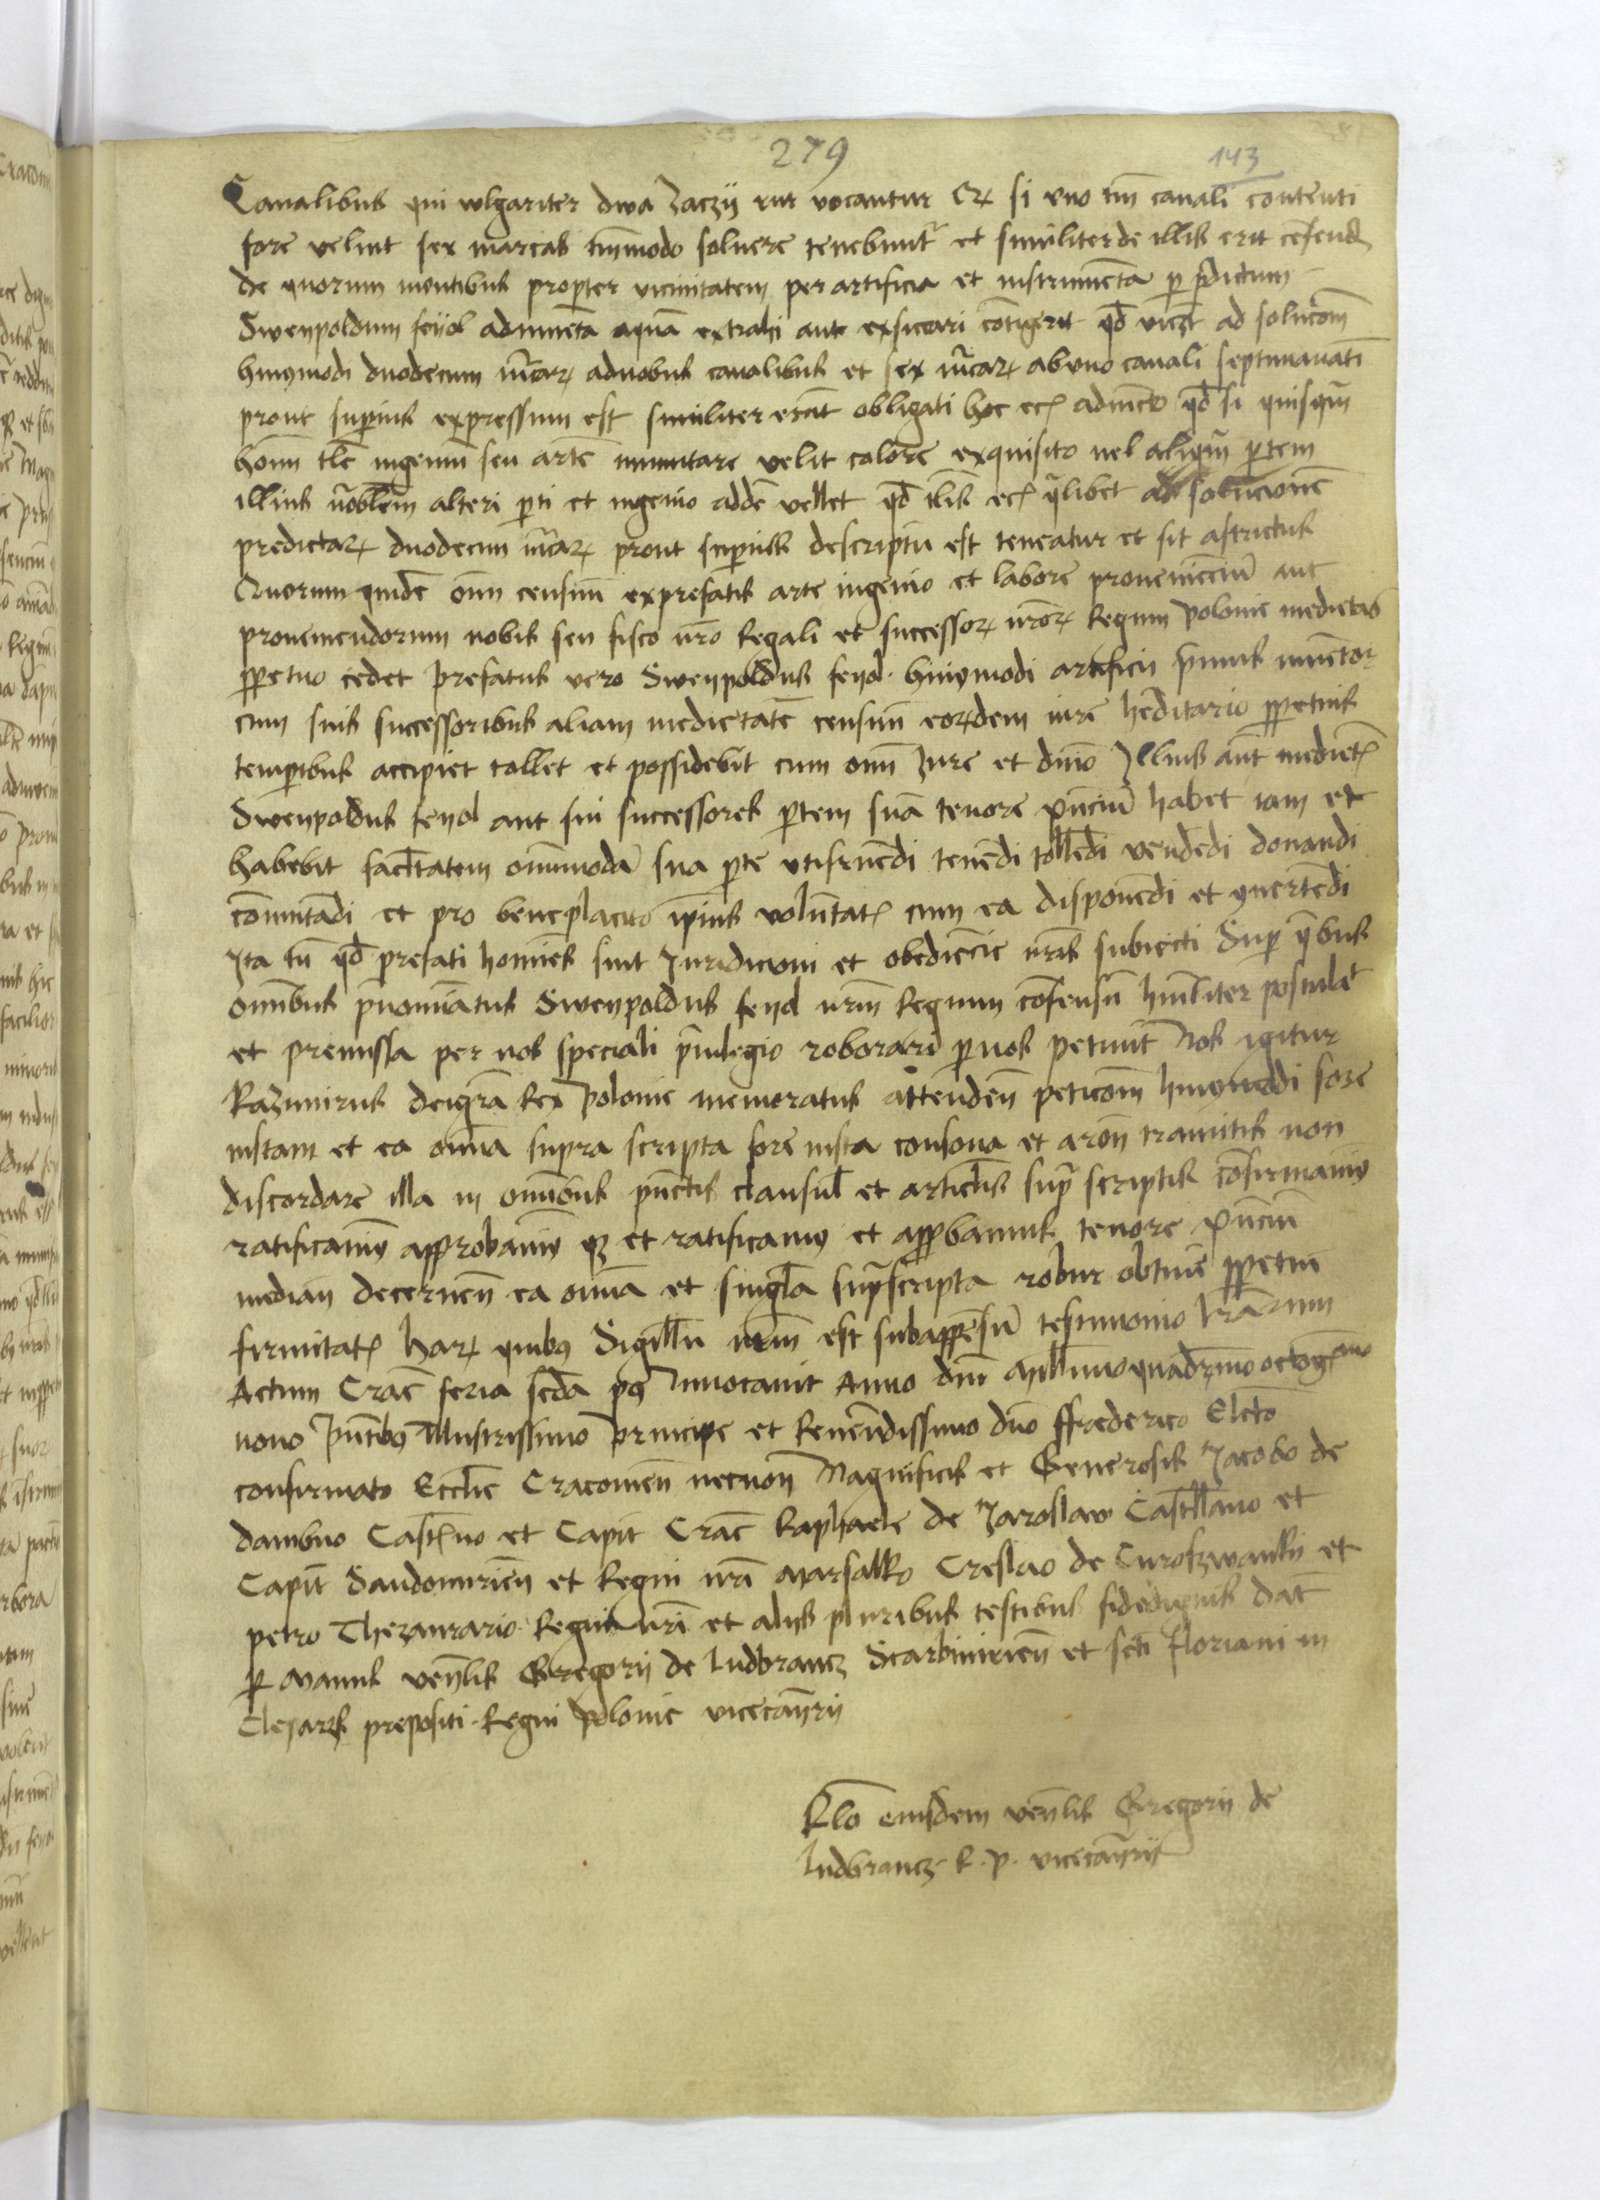 279
143
Canalibus qui wlgariter dwa Zaczy rur vocantur Et si vno tm̄ canali contenti
fore velint sex marcas tm̄modo soluere tenebunt᷑ et similiter de illis erit cēsend
de quorum montibus propter vicinitatem per artificia et instrumēta p p̄dictum
Swenpoldum feyol adinuēta aquā extrahi aut exsiccari cōtigerit qd̄ viczt ad soluc̄om̄
huiusmodi duodecim m̄carꝝ a duobus canalibus et sex m̄carꝝ ab vno canali septimanati
prout superius expressum est similiter erūt obligati hoc eciā adiūcto qd̄ si quisquā
hoīm tl̄e ingeniū seu artē immutare velit colore exquisito uel aliquā ptem
illius alteri pti et ingenio adde vellet qd̄ tl̄is eciā qīlibet ad solucionē
predictarꝝ duodecim m̄carꝝ prout superius descriptū est teneatur et sit astrictus
Quorum quidē oīm censuū ex prefatis arte ingenio et labore proueniēciū aut
proueniendorum nobis seu fisco nr̄o Regali et successorꝝ nr̄orꝝ Regum Polonie medietas
ꝑpetuo cedet prefatus vero Swenpoldus feyol huiusmodi artificii primus inuētor
cum suis successoribus aliam medietatē censuū eorꝝdem iure heditario ꝑpetuis
temporibus accipiet tollet et possidebit cum om̄i Jure et dn̄io Illius aūt mediet
Swenpoldus feyol aut sui successores ptem suā tenore pn̄ciū habet iam et
habebit facltatem omīmodā sua pte vtifruēdi tenēdi tollēdi vendēdi donandi
cōmutādi et pro beneplacito ipīus volūtat cum ea disponēdi et ꝯuertēdi
Ita tn̄ qd̄ prefati homīes sint Juridicioni et obediēcie nr̄is subiecti Sup qībus
omībus p̄nomiātus Swenpoldus feyol nrm̄ Regium cōsensū huīliter postulet
et premissa per nos speciali p̄uilegio roborari p nos petiuit Nos igitur
Kazimirus dei gr̄a Rex Polonie memoratus attenden̄ petic̄om̄ huiusmodi fore
iustam et ea oīnia supra scripta fore iusta consona et a rōn̄ tramitis non
discordare illa in omnibus pūctis clausul et articlis supra scriptis cōfirmauimꝰ
ratificauimꝰ approbauimꝰ qꝫ et ratificamꝰ et approbamus tenore pn̄ciū
median̄ decernen̄ ea oīnia et singl̄a supra scripta robur obtinē ꝑpetue
firmitat harꝝ quibꝰ Sigillū nrm̄ est subappēsū testimonio lr̄arum
Actum Crac̄ feria scd̄a pꝰ Inuocauit Anno dn̄i Millīmo quadrīmo octogīmo
nono Pn̄tibꝰ Illustrissimo Principe et Reuerēdissimo dn̄o ffrederico Elcto
confirmato Ecclie Cracouien̄ necnon Magnificis et Generosis Jacobo de
dambno Castno et Capit̄ Crac̄ Raphaele de Jaroslaw Castllano et
Capit̄ Sandomirien̄ et Regni nr̄i Marsalko Creslao de Curoszwanky et
petro Thezaurario Regni nr̄i et aliis pluribus testibus fidedignis Dat̄
p manus ven̄lis Gregorii de ludbrancz Scarbimirien̄ et scti floriani in
Clepars prepositi Regni Polonie vicecan̄rii
Rl̄o eiusdem ven̄lis Gregorii de
ludbrancz R. P. vicecan̄rii